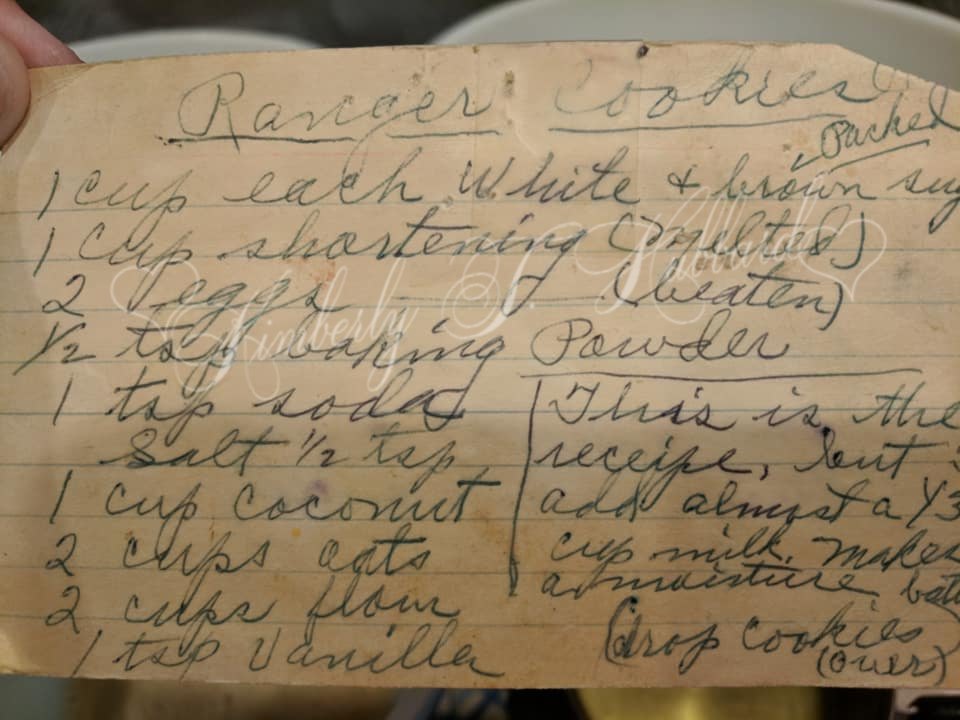 Ranger Cookies
Packed
1 cup each White & brown sug
1 Cup shortening (Melted)
2 eggs (beaten)
1/2 tsp baking Powder
1 tsp soda
Salt 1/2 tsp
1 cup Coconut
2 cups oats
2 cups flour
1 tsp Vanilla
This is the
receipe, but
add almost a 1/3
cup milk. Makes
a moisture
(drop cookies)
(over)
Kimberly